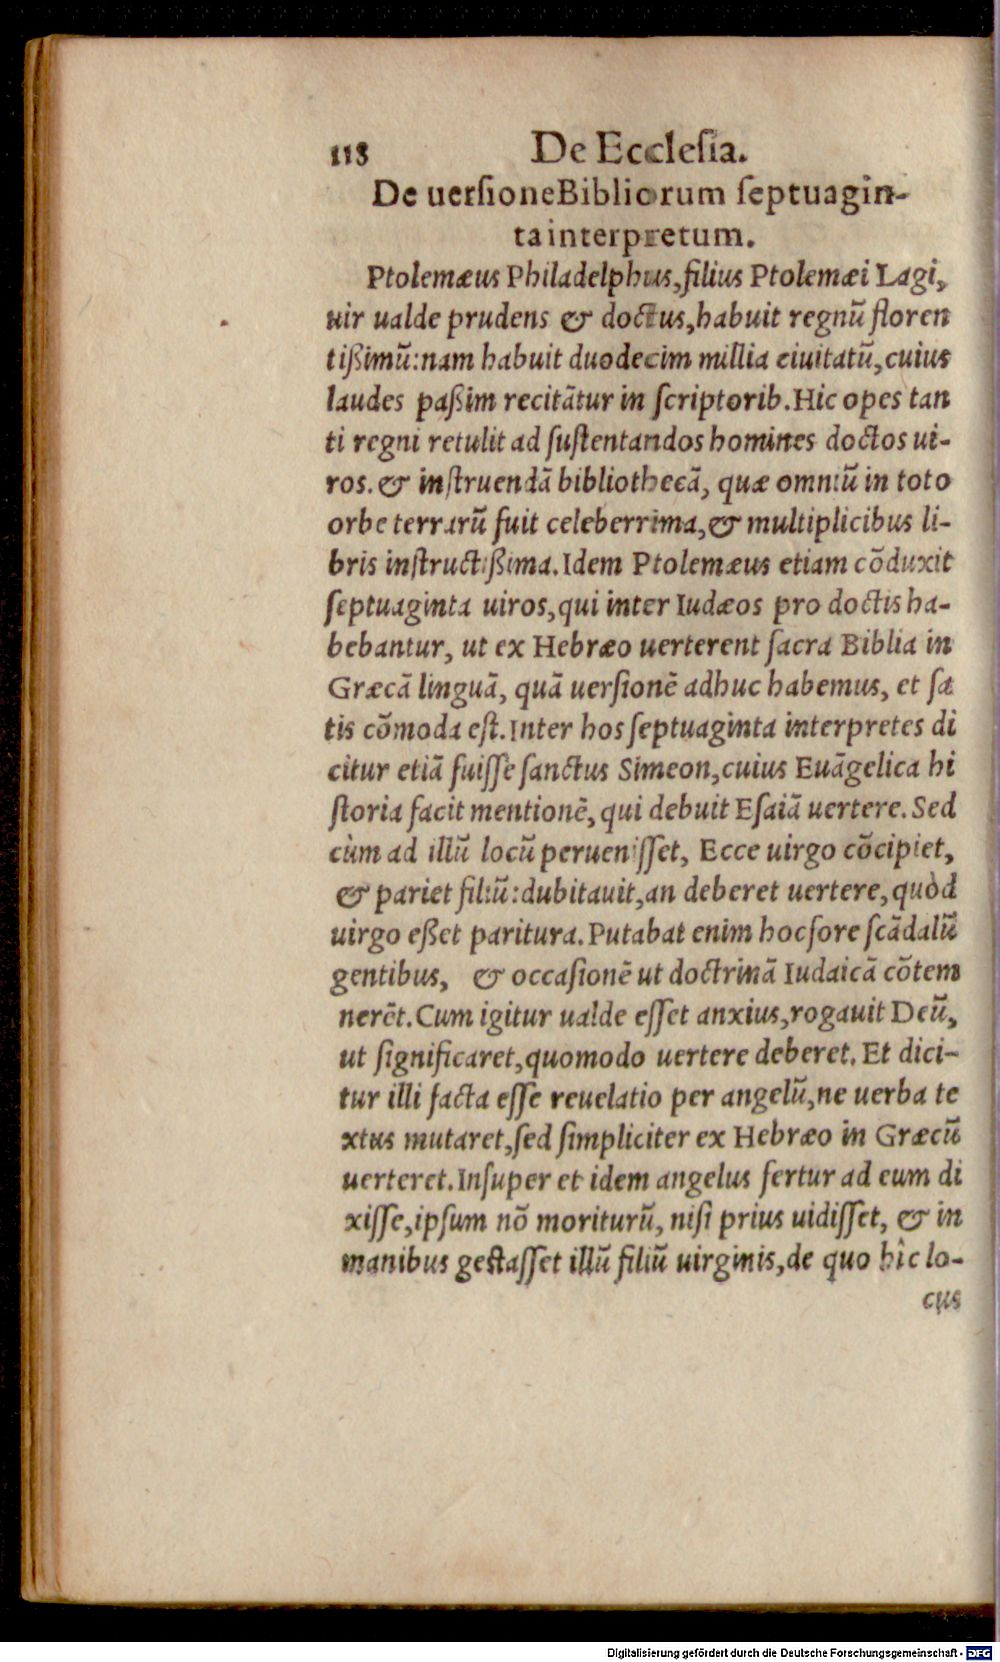 118 De Ecclesia.
De uersione Bibliorum septuagin-
ta interpretum.
Ptolemæus Philadelphus, filius Ptolemæi Lagi,
uir ualde prudens & doctus, habuit regnũ floren
tißimũ: nam habuit duodecim millia ciuitatũ, cuius
laudes paßim recitãtur in scriptorib. Hic opes tan
ti regni retulit ad sustentandos homines doctos ui-
ros. & instruendã bibliothecã, quæ omniũ in toto
orbe terrarũ fuit celeberrima, & multiplicibus li-
bris instructißima. Idem Ptolemæus etiam cõduxit
septuaginta uiros, qui inter Iudæos pro doctis ha-
bebantur, ut ex Hebræo uerterent sacra Biblia in
Græcã linguã, quã uersionẽ adhuc habemus, et sa
tis cõmoda est. Inter hos septuaginta interpretes di
citur etiã fuisse sanctus Simeon, cuius Euãgelica hi
storia facit mentionẽ, qui debuit Esaiã uertere. Sed
cùm ad illũ locũ peruenisset, Ecce uirgo cõcipiet,
& pariet filiũ: dubitauit, an deberet uertere, quòd
uirgo eßet paritura. Putabat enim hoc fore scãdalũ
gentibus, & occasionẽ ut doctrinã Iudaicã cõtem
nerẽt. Cum igitur ualde esset anxius, rogauit Deũ,
ut significaret, quomodo uertere deberet. Et dici-
tur illi facta esse reuelatio per angelũ, ne uerba te
xtus mutaret, sed simpliciter ex Hebræo in Græcũ
uerteret. Insuper et idem angelus fertur ad eum di
xisse, ipsum nõ moriturũ, nisi prius uidisset, & in
manibus gestasset illũ filiũ uirginis, de quo hîc lo-
cus
Digitalisierung gefördert durch die Deutsche Forschungsgemeinschaft - DFG